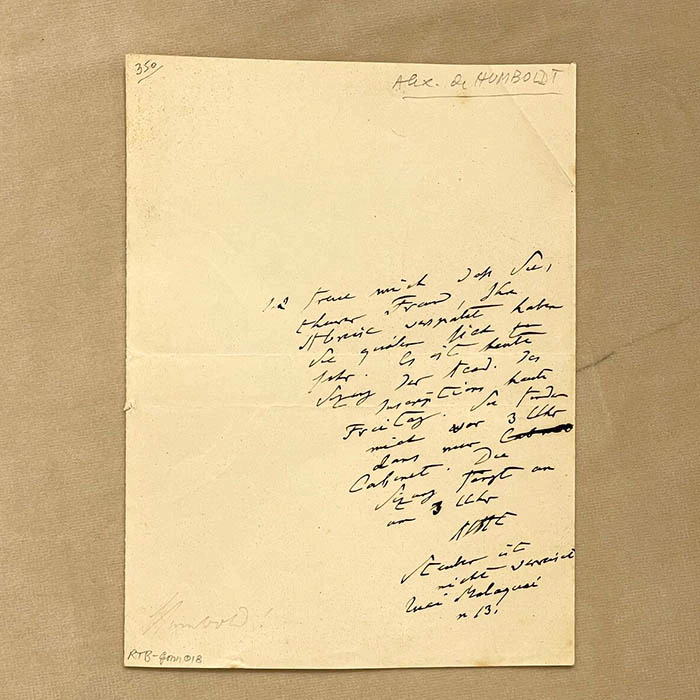 350
Alex. de HUMBOLDT
freue mich daß Sie,
theurer Freund, Ihre
Abreise verspätet haben
Sie quälen sich zu
sehr. Es ist heute
Sizung der Acad. des
Inscriptions heute
Freitag. Sie finden
mich vor 3 Uhr
dans mon
Cabinet. Die
Sizung fängt an
um 3 Uhr
AHt
ist
nicht verreist
Quai Malaquai
n 13.
Humboldt
RTB-